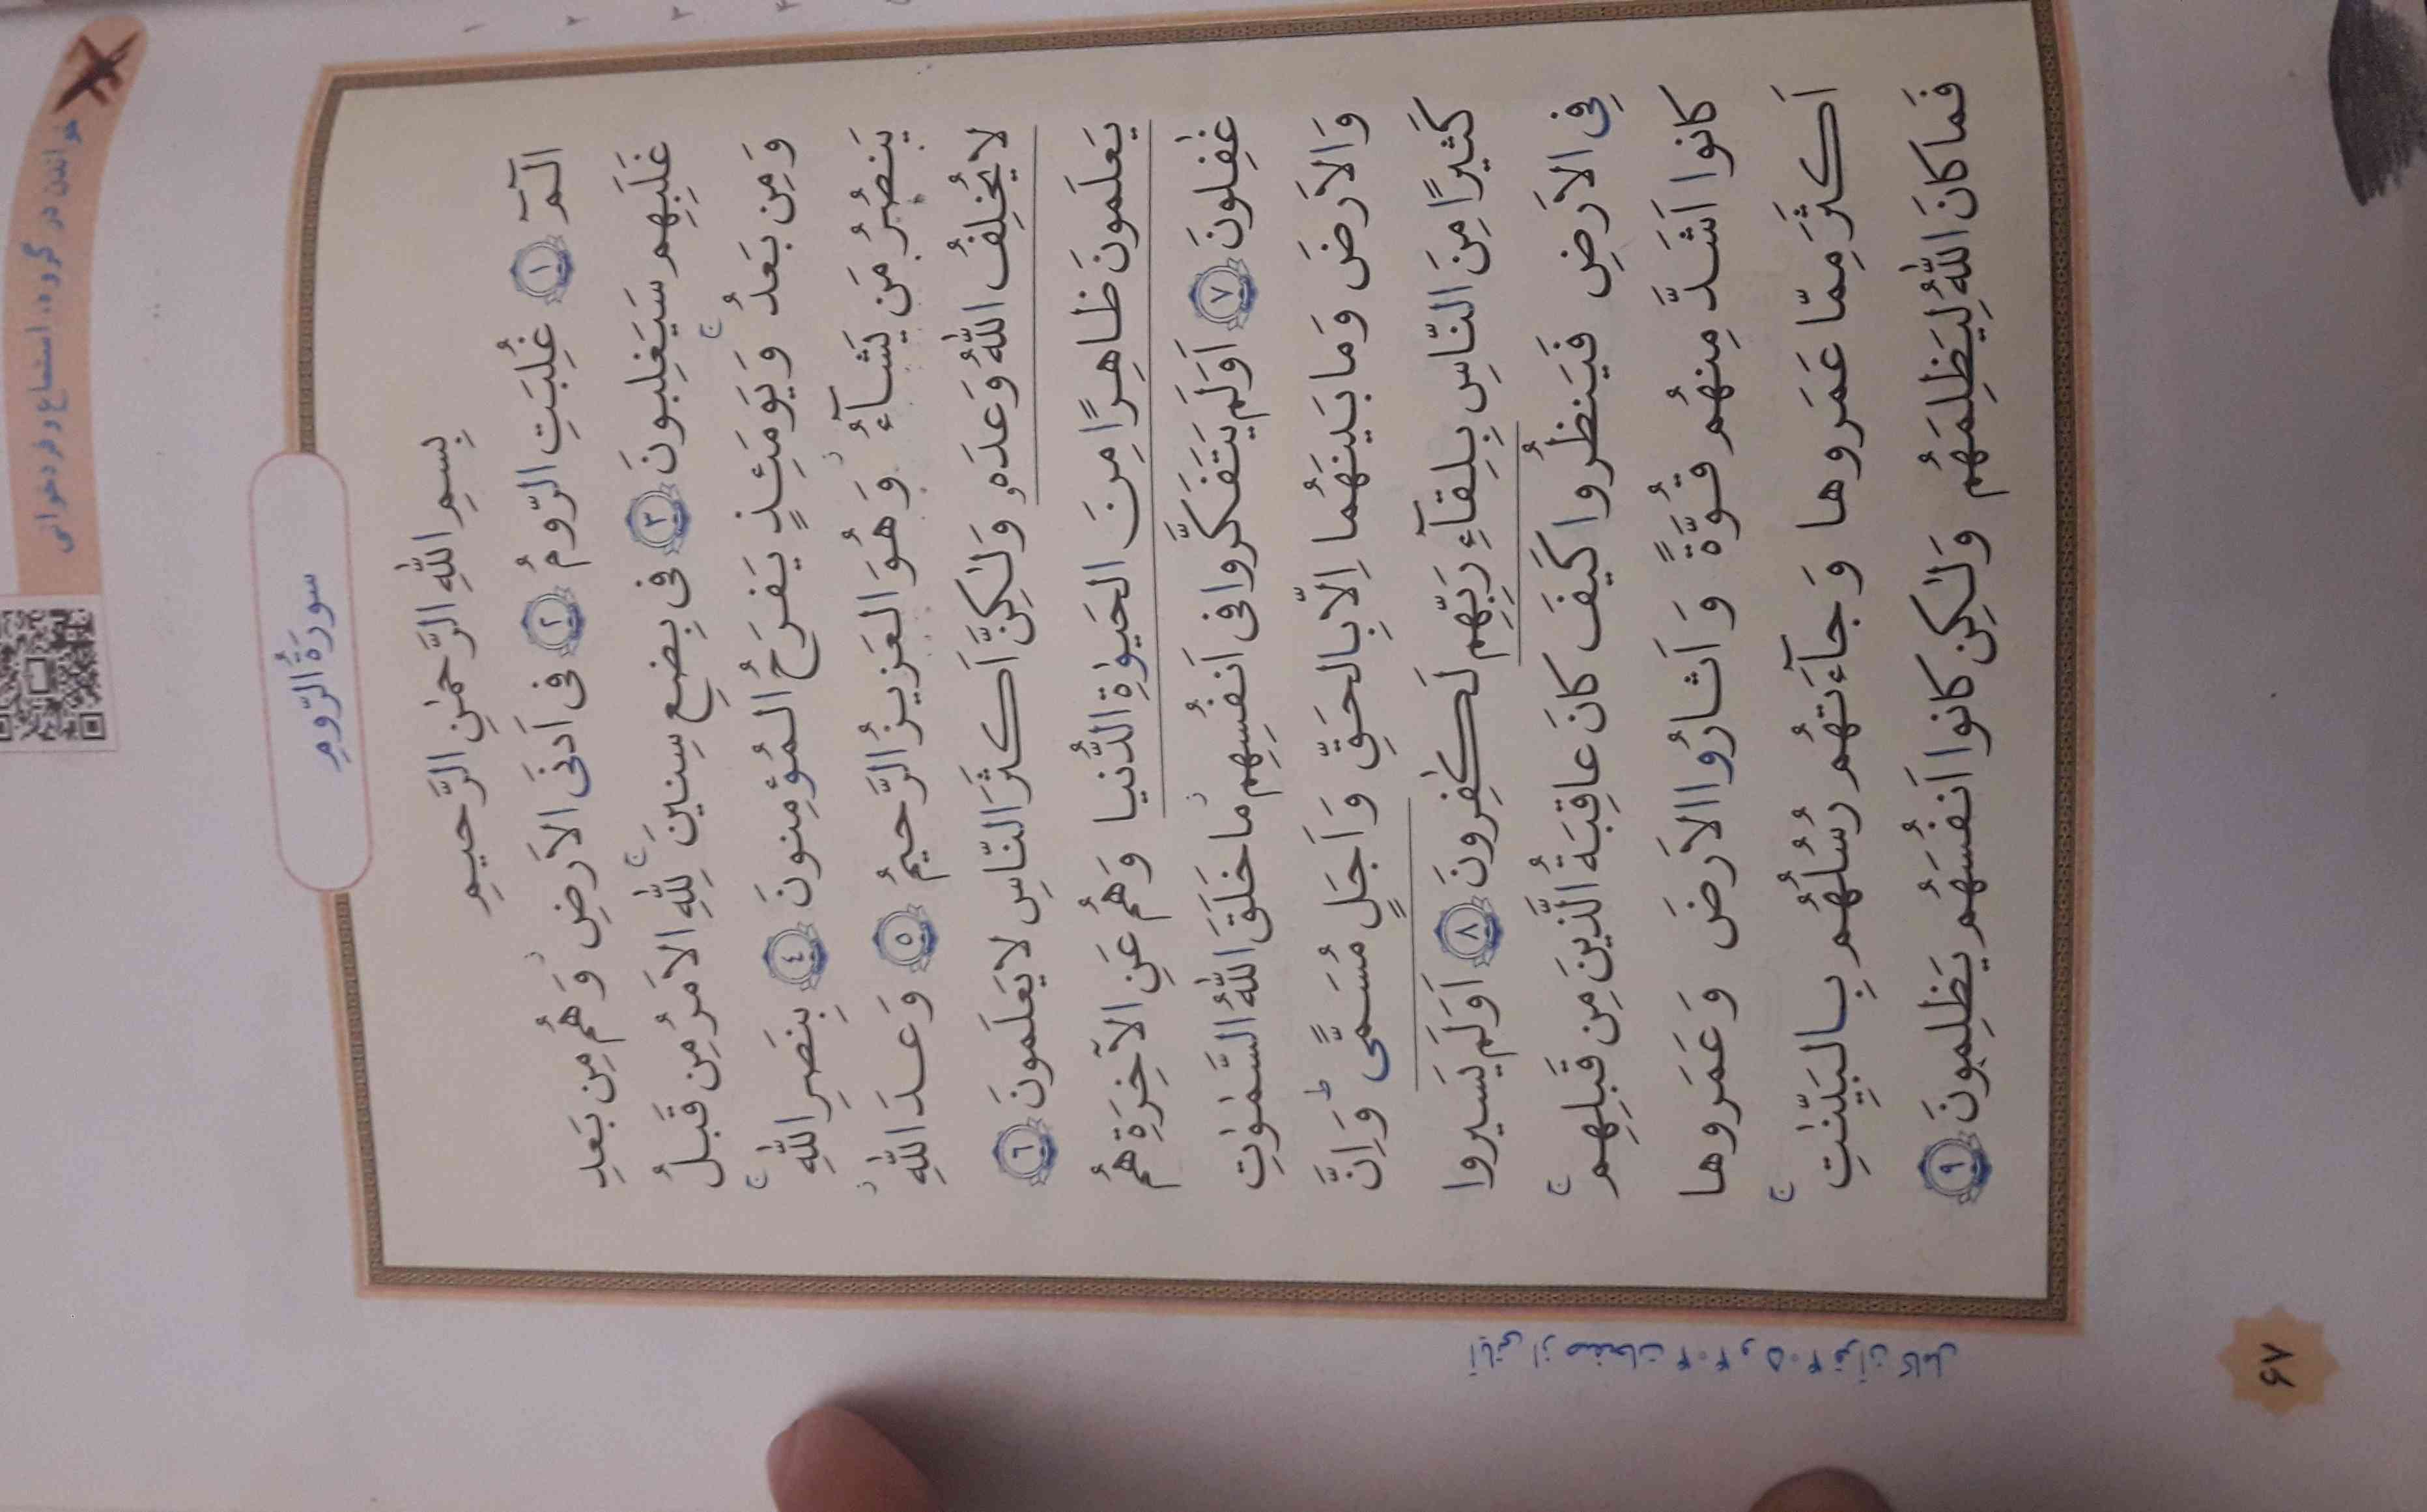 خواندن در گروه، استماع و فردخوانی
سورَةُ الرّومِ
بِسمِ اللّٰهِ الرَّحمٰنِ الرَّحیمِ
الٓمٓ ١ غُلِبَتِ الرّومُ ٢ فی اَدنَی الاَرضِ وَ هُم مِن بَعدِ
غَلَبِهِم سَیَغلِبونَ ٣ فی بِضعِ سِنینَ لِلّٰهِ الاَمرُ مِن قَبلُ
وَ مِن بَعدُ وَ یَومَئِذٍ یَفرَحُ المُؤمِنونَ ٤ بِنَصرِ اللّٰهِ
یَنصُرُ مَن یَشآءُ وَ هُوَ العَزیزُ الرَّحیمُ ٥ وَعدَ اللّٰهِ
لا یُخلِفُ اللّٰهُ وَعدَهو وَ لٰکِنَّ اَکثَرَ النّاسِ لا یَعلَمونَ ٦
یَعلَمونَ ظاهِرًا مِنَ الحَیوٰةِ الدُّنیا وَ هُم عَنِ الآخِرَةِ هُم
غٰفِلونَ ٧ اَوَلَم یَتَفَکَّروا فی اَنفُسِهِم ما خَلَقَ اللّٰهُ السَّمٰوٰتِ
وَ الاَرضَ وَ ما بَینَهُما اِلّا بِالحَقِّ وَ اَجَلٍ مُسَمًّی ط وَ اِنَّ
کَثیرًا مِنَ النّاسِ بِلِقآءِ رَبِّهِم لَکٰفِرونَ ٨ اَوَلَم یَسیروا
فِی الاَرضِ فَیَنظُروا کَیفَ کانَ عاقِبَةُ الَّذینَ مِن قَبلِهِم ج
کانوا اَشَدَّ مِنهُم قُوَّةً وَ اَثارُوا الاَرضَ وَ عَمَروها
اَکثَرَ مِمّا عَمَروها وَ جآءَتهُم رُسُلُهُم بِالبَیِّنٰتِ ج
فَما کانَ اللّٰهُ لِیَظلِمَهُم وَ لٰکِن کانوا اَنفُسَهُم یَظلِمونَ ٩
آیاتی از صفحات ۴۰۴ و ۴۰۵ قرآن کامل
۶۷